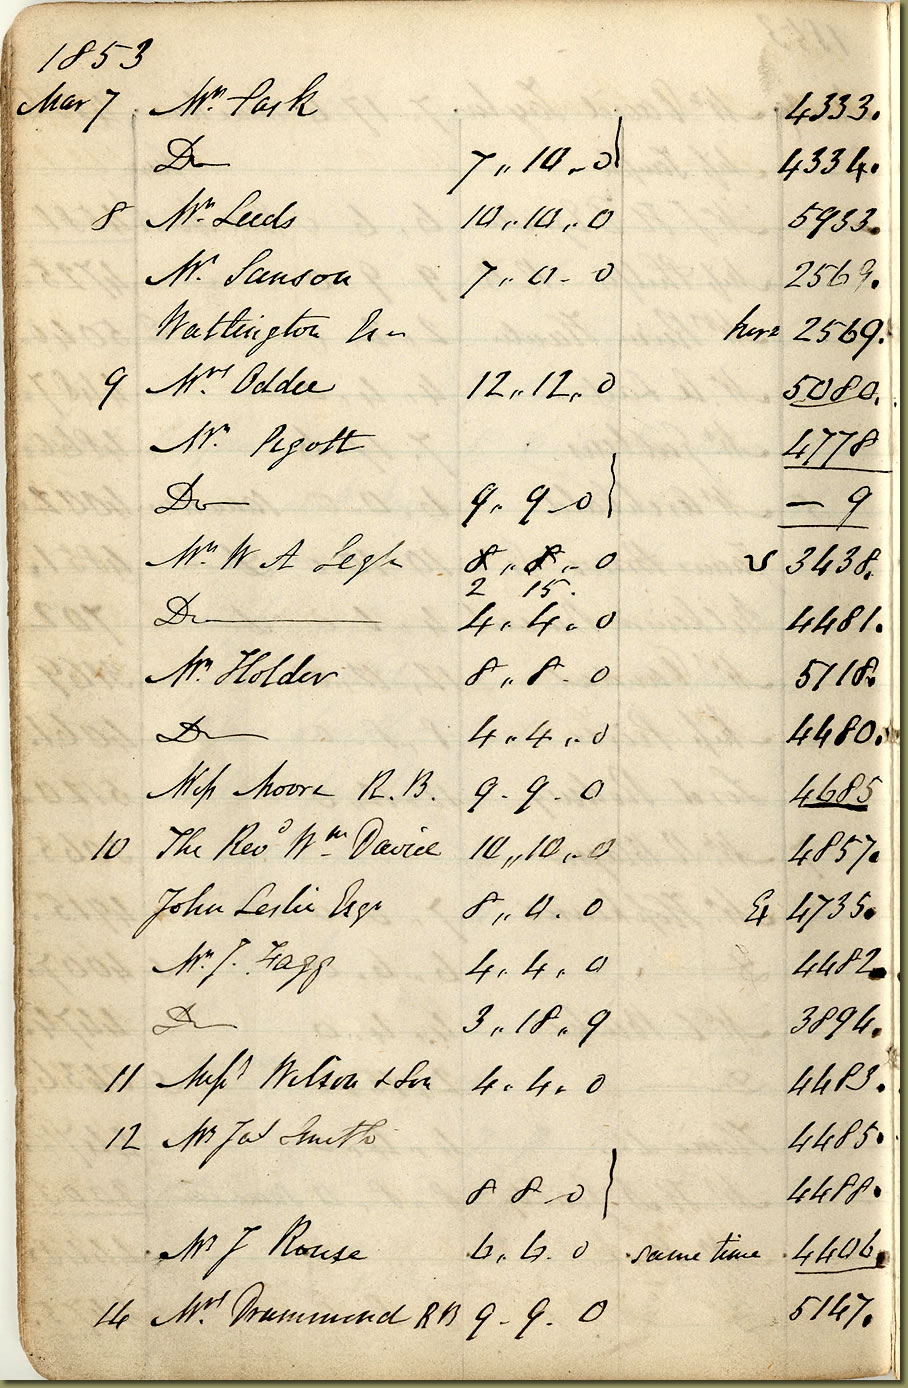 1853
Mar 7 Mr. Park 4333.
Do 7,, 10,, 0 4334.
8 Mr. Leeds 10,, 10,, 0 5933.
Mr. Sanson 7,, 0 - 0 2569.
Watlington Esq 2569.
9 Mrs. Oddie 12,, 12,, 0 5080.
Mr. Pigott 4778
Do 9,, 9 - 0 — 9
Mr. W A Legh 8,, 8,, 0 3438.
2 15.
Do 4,, 4,, 0 4481.
Mr. Holder 8,, 8 - 0 5118.
Do 4,, 4,, 0 4480.
Miss Moore R. B. 9 - 9. 0 4685
10 The Revd Wm Davies 10,, 10,, 0 4857.
John Leslie Esqr 8,, 0. 0 4735.
Mr. J. Fagg 4. 4. 0 4482.
Do 3,, 18,, 9 3894.
11 Messrs Wilson & Son 4. 4. 0 4483.
12 Mr Jas Smith 4485.
8 8 - 0 4488.
Mr J Rouse 6,, 6. 0 same time 4406.
14 Mrs. Drummond R B 9 - 9. 0 5147.